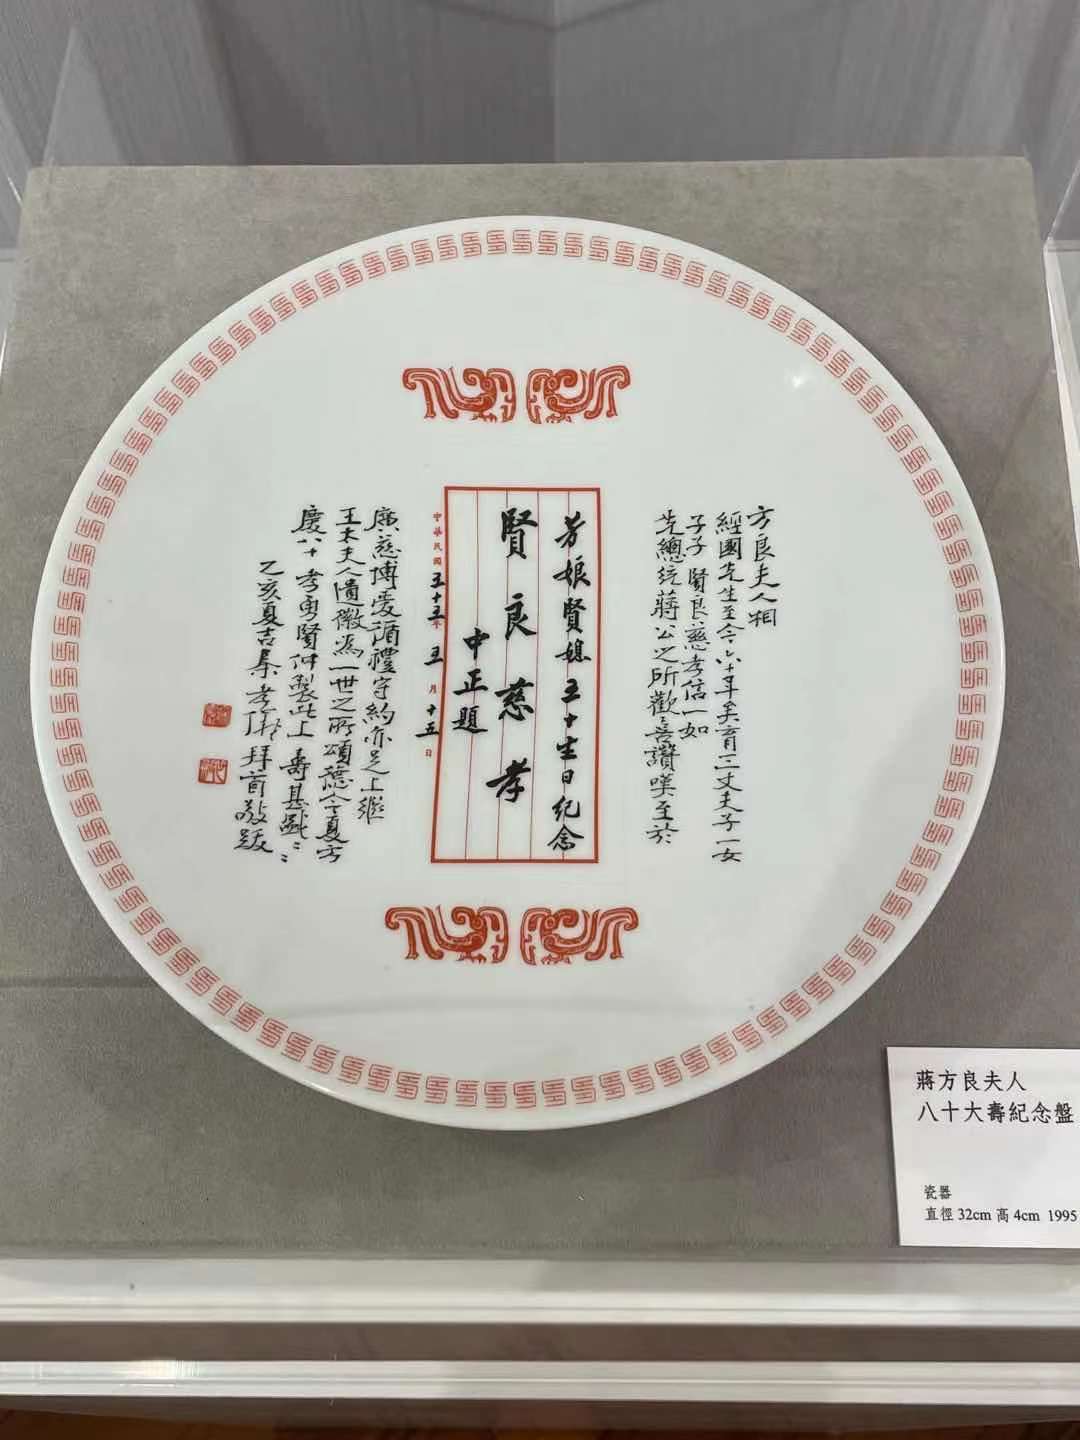 方良夫人相
經國先生至今六十年矣育三丈夫子一女
子子賢良慈孝信一如
先總統蔣公之所歡喜讚嘆至於
芳娘賢媳五十生日紀念
賢良慈孝
中正題
中華民國五十五年五月十五日
廣慈博愛循禮守約亦足上繼
王太夫人遺徽為一世之所頌德今夏方
慶八十孝勇賢仲製此上壽甚盛
乙亥夏吉秦孝儀拜首敬跋
蔣方良夫人
八十大壽紀念盤
瓷器
直徑 32cm 高 4cm 1995